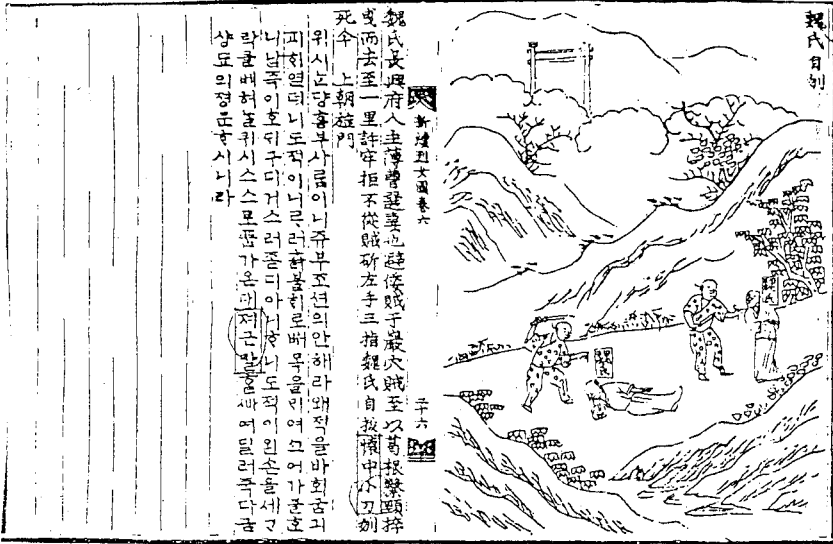 魏氏自刎
魏氏
魏氏
新續烈女圖卷六
二十六
魏氏長興府人主簿曺璉妻也避倭賊于巖穴賊至以葛根繫頸捽
曳而去至一里許牢拒不從賊斫左手三指魏氏自拔懷中小刀刎
死今 上朝旌門
위시ᄂᆞᆫ댱흥부사ᄅᆞᆷ이니쥬부조션의안해라왜적을바회굼긔
피ᄒᆞ엿더니도적이니ᄅᆞ러츩불희로ᄡᅥ목을ᄆᆡ여ᄭᅳ어가ᄂᆞᆫ호
니남즉이호ᄃᆡ구디거스러졷디아니ᄒᆞ니도적이왼손을세가
락글베혀ᄂᆞᆯ위시스스로품가온대져근칼흘ᄲᅡ여딜러죽다금
샹됴의졍문ᄒᆞ시니라